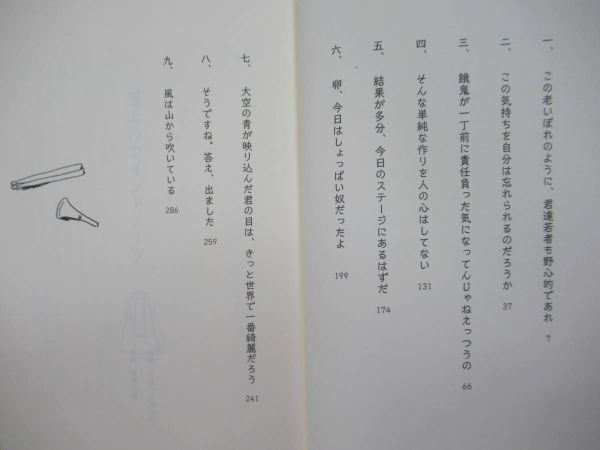 一、この老いぼれのように、君達若者も野心的であれ 7
二、この気持ちを自分は忘れられるのだろうか 37
三、餓鬼が一丁前に責任負った気になってんじゃねえっつうの 66
四、そんな単純な作りを人の心はしてない 131
五、結果が多分、今日のステージにあるはずだ 174
六、卵、今日はしょっぱい奴だったよ 199
七、大空の青が映り込んだ君の目は、きっと世界で一番綺麗だろう 241
八、そうですね。答え、出ました 259
九、風は山から吹いている 286